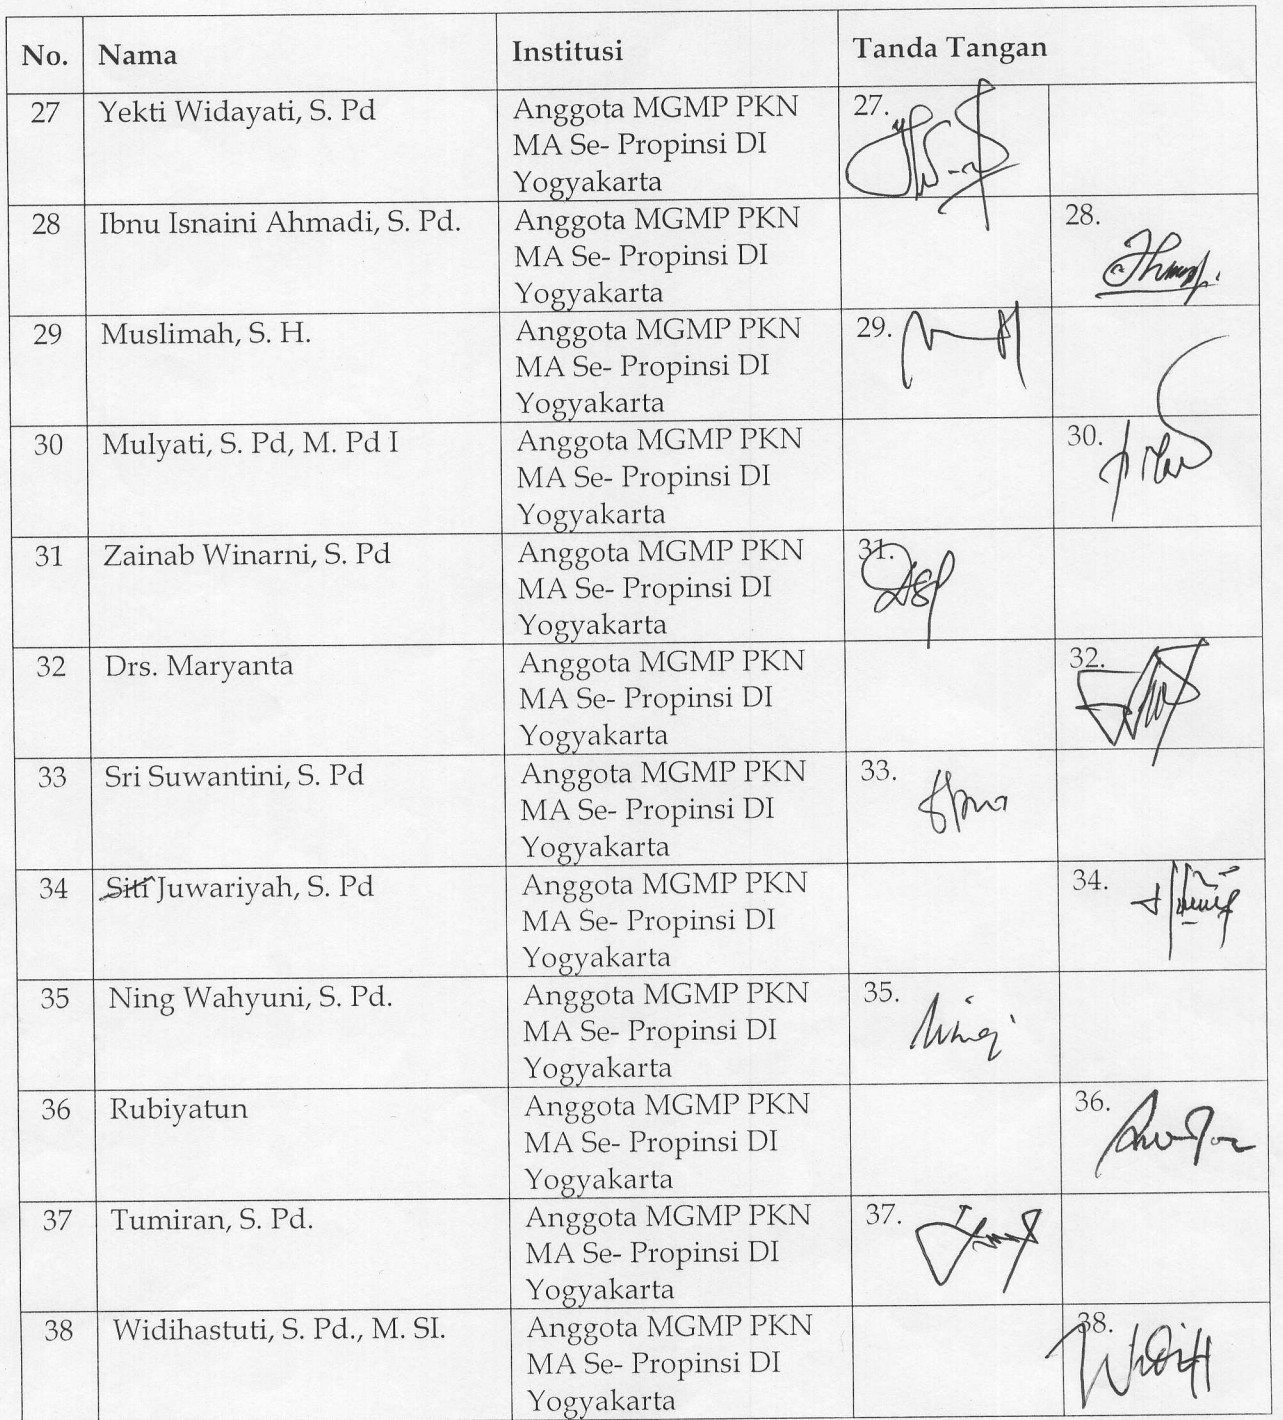 No. Nama Institusi Tanda Tangan
27 Yekti Widayati, S. Pd Anggota MGMP PKN 27.
MA Se- Propinsi DI
Yogyakarta
28 Ibnu Isnaini Ahmadi, S. Pd. Anggota MGMP PKN 28.
MA Se- Propinsi DI
Yogyakarta
29 Muslimah, S. H. Anggota MGMP PKN 29.
MA Se- Propinsi DI
Yogyakarta
30 Mulyati, S. Pd, M. Pd I Anggota MGMP PKN 30.
MA Se- Propinsi DI
Yogyakarta
31 Zainab Winarni, S. Pd Anggota MGMP PKN 31.
MA Se- Propinsi DI
Yogyakarta
32 Drs. Maryanta Anggota MGMP PKN 32.
MA Se- Propinsi DI
Yogyakarta
33 Sri Suwantini, S. Pd Anggota MGMP PKN 33.
MA Se- Propinsi DI
Yogyakarta
34 Siti Juwariyah, S. Pd Anggota MGMP PKN 34.
MA Se- Propinsi DI
Yogyakarta
35 Ning Wahyuni, S. Pd. Anggota MGMP PKN 35.
MA Se- Propinsi DI
Yogyakarta
36 Rubiyatun Anggota MGMP PKN 36.
MA Se- Propinsi DI
Yogyakarta
37 Tumiran, S. Pd. Anggota MGMP PKN 37.
MA Se- Propinsi DI
Yogyakarta
38 Widihastuti, S. Pd., M. SI. Anggota MGMP PKN 38.
MA Se- Propinsi DI
Yogyakarta